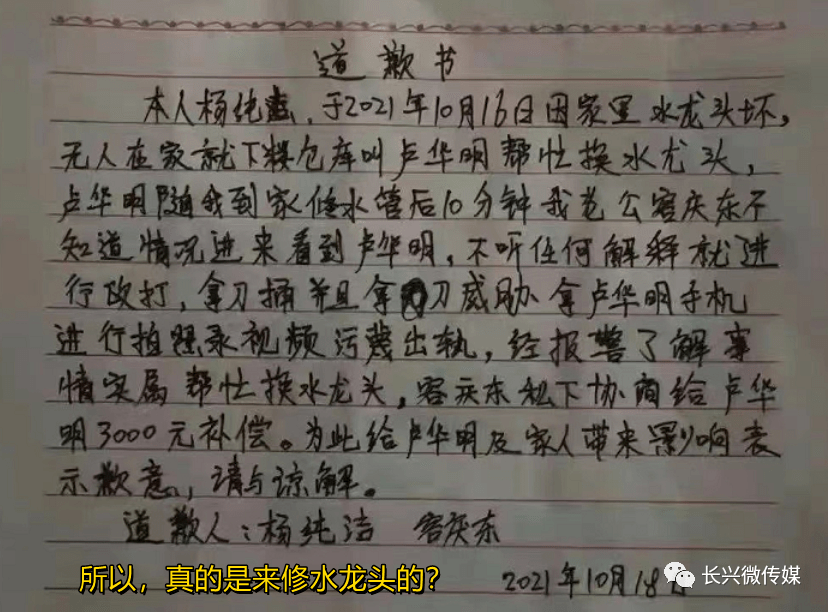 道歉书
本人杨纯洁,于2021年10月16日因家里水龙头坏,
无人在家就下楼仓库叫卢华明帮忙换水龙头,
卢华明随我到家修水管后10分钟我老公容庆东不
知道情况进来看到卢华明,不听任何解释就进
行攻打,拿刀捅并且拿刀威胁拿卢华明手机
进行拍照录视频污蔑出轨,经报警了解事
情实属帮忙换水龙头,容庆东私下协商给卢华
明3000元补偿。为此给卢华明及家人带来影响表
示歉意,请与谅解。
道歉人:杨纯洁 容庆东
2021年10月18日
所以,真的是来修水龙头的?
长兴微传媒